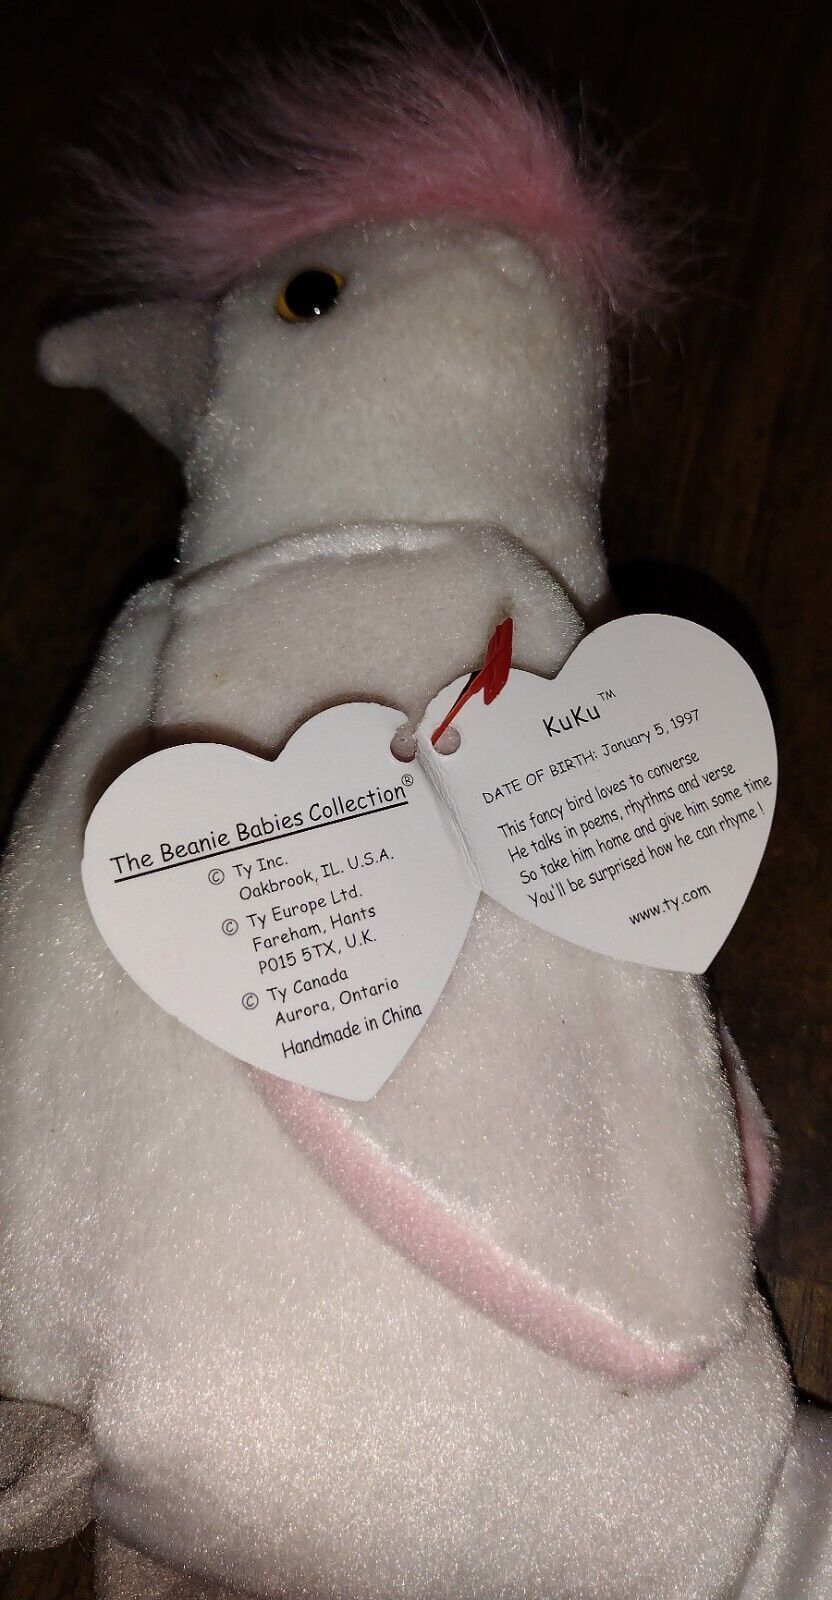 The Beanie Babies Collection®
© Ty Inc.
Oakbrook, IL. U.S.A.
© Ty Europe Ltd.
Fareham, Hants
PO15 5TX, U.K.
© Ty Canada
Aurora, Ontario
Handmade in China
KuKu™
DATE OF BIRTH: January 5, 1997
This fancy bird loves to converse
He talks in poems, rhythms and verse
So take him home and give him some time
You'll be surprised how he can rhyme!
www.ty.com